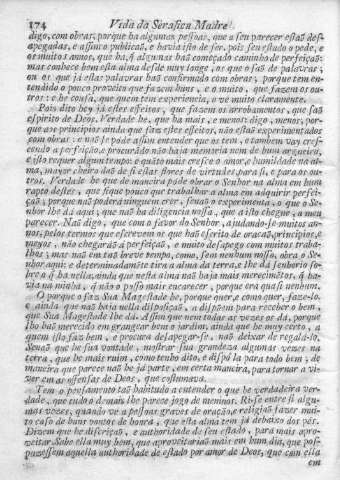 174 Vida da Serafica Madre
digo, com obras; porque ha algumas pessoas, que a seu parecer estaõ desapegadas, e assim o publicaõ, e havia isto de ser, pois seu estado o pede, e
os muitos annos, que ha, que algumas haõ começado caminho de perfeiçaõ:
mas conhece bem esta alma desde muy longe, os que o saõ de palavras;
ou os que já estas palavras haõ confirmado com obras; porque tem entendido o pouco proveito que fazem huns, e o muito, que fazem os outros: e he cousa, que quem tem experiencia, o ve muito claramente.
Pois dito hey já estes effeitos, que fazem os arrobamentos, que saõ
espirito de Deos. Verdade he, que ha mais, e menos: digo, menos, porque aos principios ainda que faz estes effeitos, não estaõ experimentados
com obras: e não se póde assim entender que os tem, e tambem vay crescendo a perfeiçaõ, e procurando não haja memoria nem de hum argueiro,
e isto requer algum tempo: e quãto mais cresce o amor, e humildade na alma, mayor cheiro daõ de si estas flores de virtudes para si, e para os outros. Verdade he que de maneira póde obrar o Senhor na alma em hum
rapto destes, que fique pouco que trabalhar a alma em adquirir perfeiçaõ; porque naõ poderá ninguem crer, senaõ o experimenta, o que o Senhor lhe dá aqui, que naõ ha diligencia nossa, que a isto chegue, a meu
parecer. Naõ digo, que com o favor do Senhor, ajudando-se muitos annos, pelos termos que escrevem os que haõ escrito de oraçaõ, principios, e
meyos, não chegaráõ á perfeiçaõ, e muito desapego com muitos trabalhos; mas naõ em taõ breve tempo, como, sem nenhum nosso, obra o Senhor aqui: e determinadamẽte tira a alma da terra, e lhe dá senhorio sobre
    q ha nella, ainda que nesta alma naõ haja mais merecimẽtos, q havia na minha, q não o posso mais encarecer, porque era quasi nenhum.
O porque o faz Sua Magestade he, porque quer, e como quer, faze-lo,
e ainda que naõ haja nella disposiçaõ, a dispoem para receber o bem,
que Sua Magestade lhe dá. Assim que nem todas as vezes os dá, porque
lho haõ merecido em grangear bem o jardim, ainda que he muy certo, a
quem isto faz bem, e procura desapegar-se, naõ deixar de regalá-lo,
Senaõ que he sua vontade, mostrar sua grandeza algumas vezes na
terra, que he mais ruim, como tenho dito, e dispõ-la para todo bem, de
maneira que parece naõ he já parte, em certa maneira, para tornar a viver em as offensas de Deos, que costumava.
Tem o pensamento taõ habituado a entender o que he verdadeira verdade, que tudo o demais lhe parece jogo de meninos. Ri-se entre si algumas vezes, quando ve a pessoas graves de oraçaõ, e religiaõ fazer muito caso de huns pontos de honra, que esta alma tem já debaixo dos pés.
Dizem que he discriçaõ, e authoridade de seu estado, para mais aproveitar. Sabe ella muy bem, que aproveitariaõ mais em hum dia, que pospuzessem aquella authoridade de estado por amor de Deos, que com ella
em